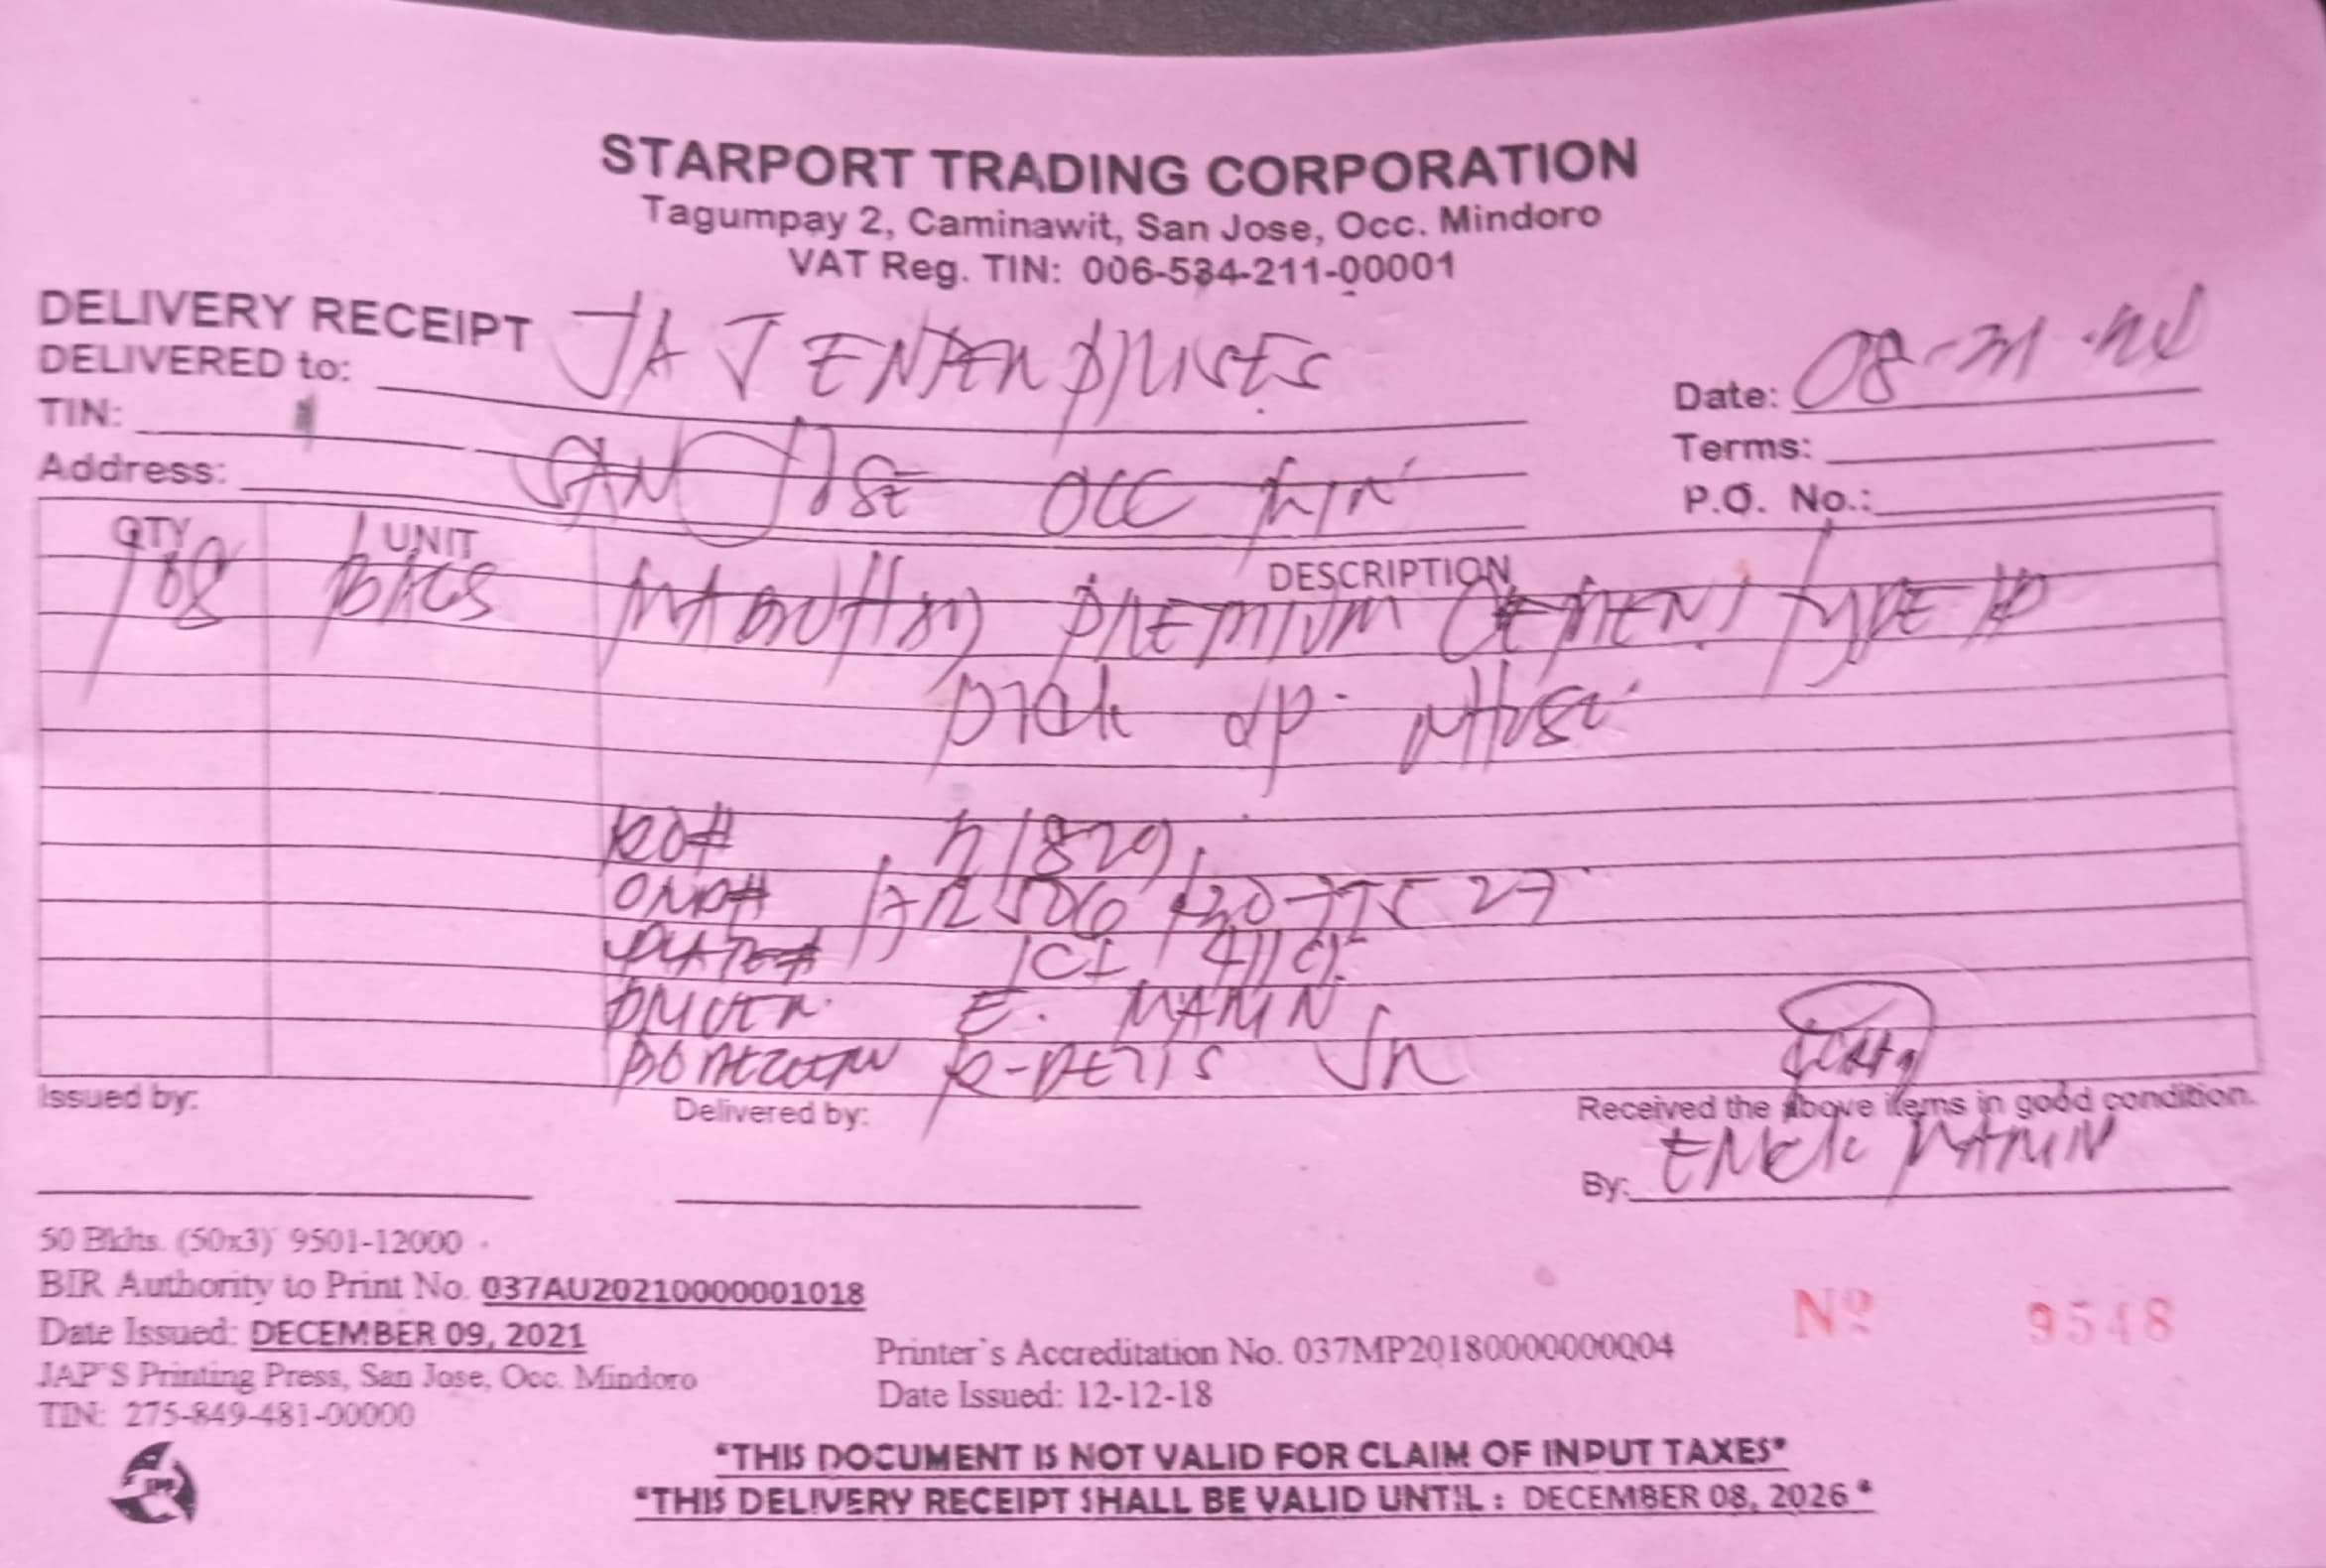 STARPORT TRADING CORPORATION
Tagumpay 2, Caminawit, San Jose, Occ. Mindoro
VAT Reg. TIN: 006-534-211-00001
DELIVERY RECEIPT
DELIVERED to: JAJ ENTERPRISES
Date: 08-31-24
TIN:
Terms:
Address: SAN JOSE OCC MIN
P.O. No.:
QTY UNIT DESCRIPTION
BAGS PREMIUM CEMENT TYPE
PICK UP
RO# 21829
PLATE#
DRIVER E. MARIN
Issued by:
Delivered by:
Received the above items in good condition.
By: MARIN
50 Bklts. (50x3) 9501-12000
BIR Authority to Print No. 037AU20210000001018
Date Issued: DECEMBER 09, 2021
JAP'S Printing Press, San Jose, Occ. Mindoro
TIN: 275-849-481-00000
Printer's Accreditation No. 037MP20180000000004
Date Issued: 12-12-18
Nº 9548
*THIS DOCUMENT IS NOT VALID FOR CLAIM OF INPUT TAXES*
*THIS DELIVERY RECEIPT SHALL BE VALID UNTIL : DECEMBER 08, 2026 *